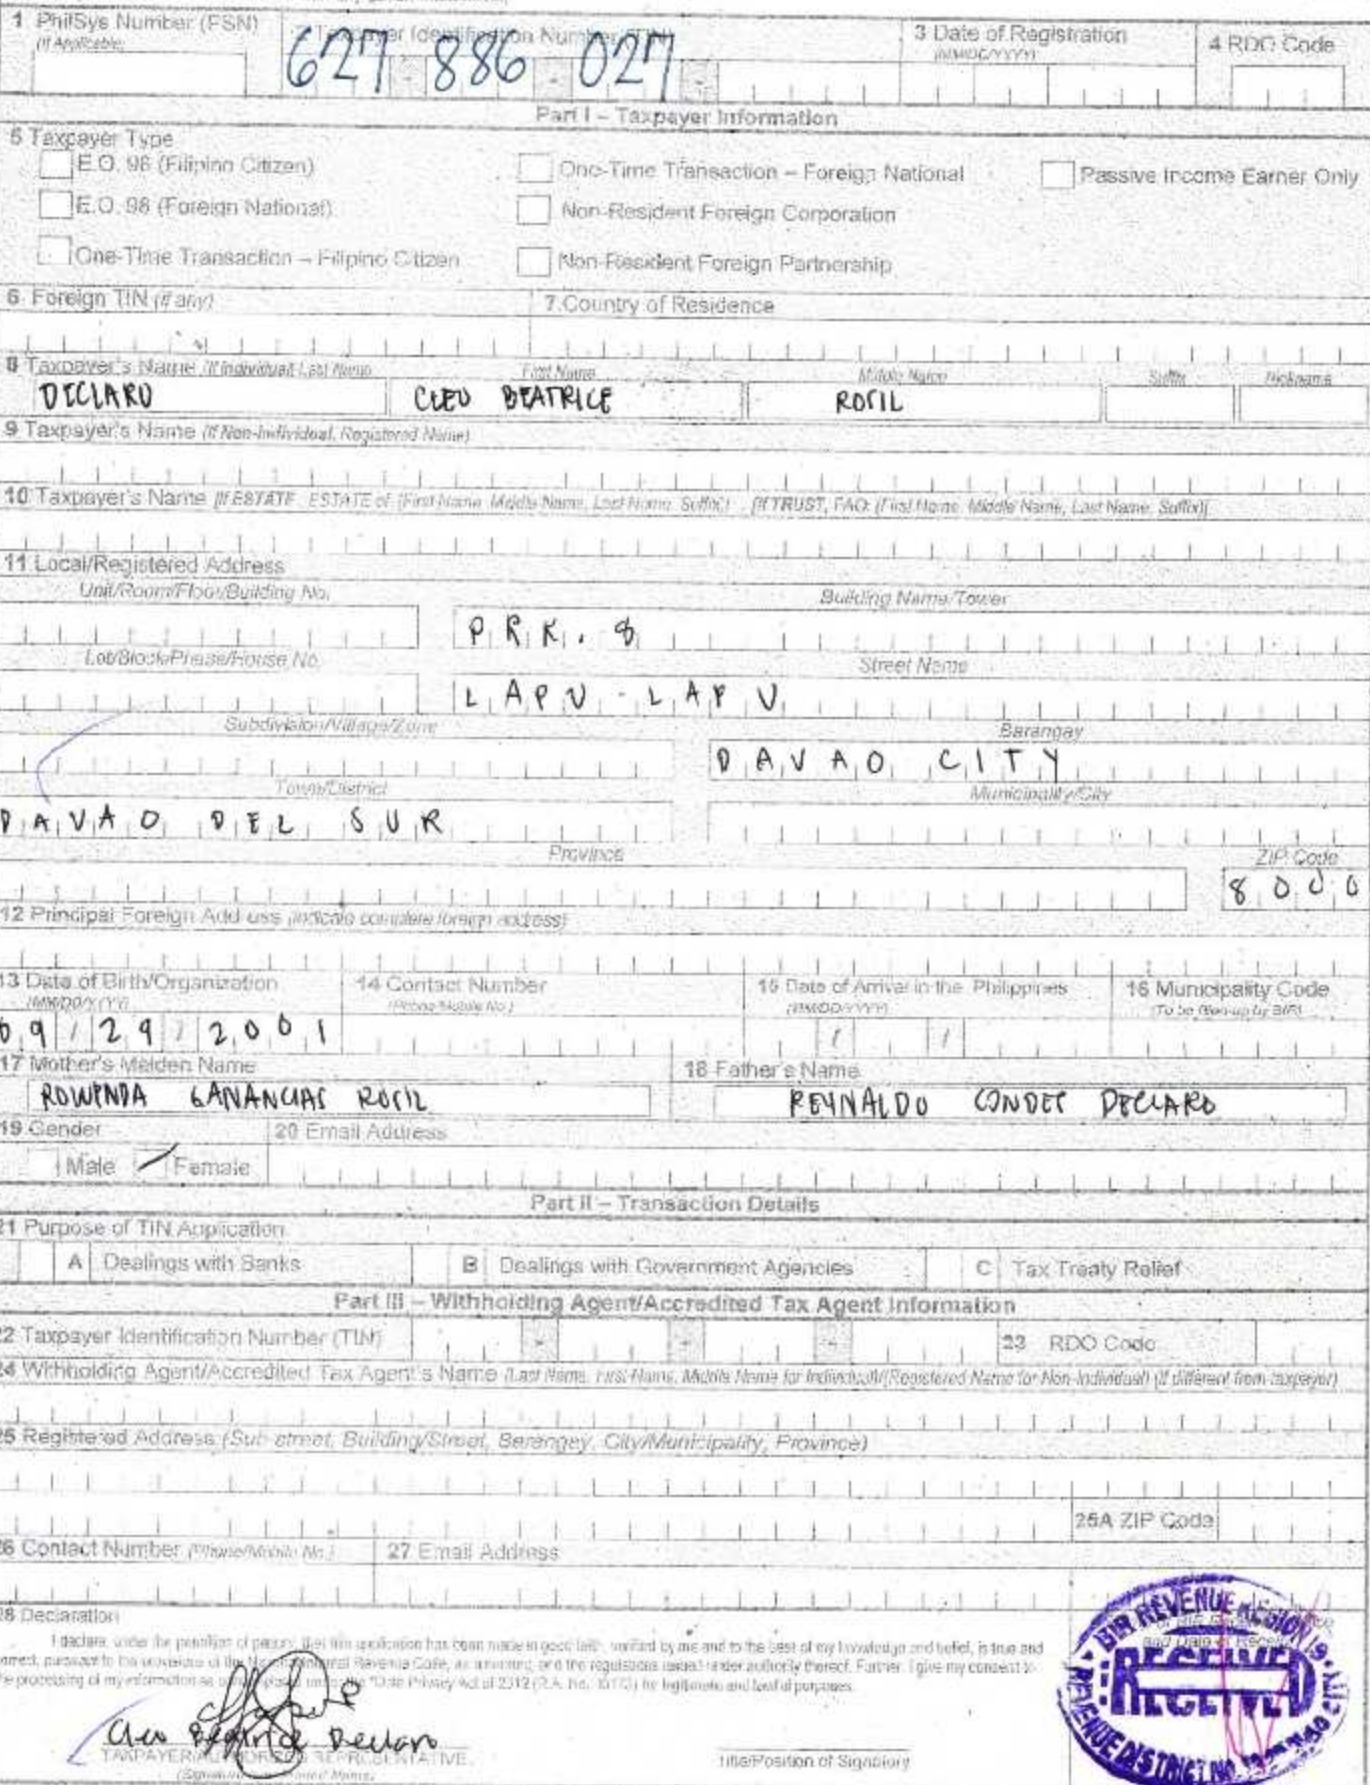 1 PhilSys Number (PSN)
(If Applicable)
Taxpayer Identification Number (TIN)
627 - 886 - 027 -
3 Date of Registration
(MM/DD/YYYY)
4 RDO Code
Part I – Taxpayer Information
5 Taxpayer Type
E.O. 98 (Filipino Citizen)
One-Time Transaction – Foreign National
Passive Income Earner Only
E.O. 98 (Foreign National)
Non-Resident Foreign Corporation
One-Time Transaction – Filipino Citizen
Non-Resident Foreign Partnership
6 Foreign TIN (if any)
7 Country of Residence
8 Taxpayer's Name (If Individual) Last Name
First Name
Middle Name
Suffix
Nickname
DECLARO
CLEO BEATRICE
ROSIL
9 Taxpayer's Name (If Non-Individual, Registered Name)
10 Taxpayer's Name (If ESTATE, ESTATE of (First Name, Middle Name, Last Name, Suffix) (If TRUST, FAO: (First Name, Middle Name, Last Name, Suffix)
11 Local/Registered Address
Unit/Room/Floor/Building No.
Building Name/Tower
PRK. 8
Lot/Block/Phase/House No.
Street Name
LAPU-LAPU
Subdivision/Village/Zone
Barangay
DAVAO CITY
Town/District
Municipality/City
DAVAO DEL SUR
Province
ZIP Code
8000
12 Principal Foreign Address (indicate complete foreign address)
13 Date of Birth/Organization
(MM/DD/YYYY)
14 Contact Number
(Phone/Mobile No.)
15 Date of Arrival in the Philippines
(MM/DD/YYYY)
16 Municipality Code
(To be filled-up by BIR)
09/29/2001
/ /
17 Mother's Maiden Name
18 Father's Name
ROWENDA GANANCIAS ROSIL
REYNALDO CONDES DECLARO
19 Gender
20 Email Address
Male
Female
Part II – Transaction Details
21 Purpose of TIN Application
A Dealings with Banks
B Dealings with Government Agencies
C Tax Treaty Relief
Part III – Withholding Agent/Accredited Tax Agent Information
22 Taxpayer Identification Number (TIN)
- - -
23 RDO Code
24 Withholding Agent/Accredited Tax Agent's Name (Last Name, First Name, Middle Name for Individual)/(Registered Name for Non-Individual) (if different from taxpayer)
25 Registered Address (Sub-street, Building/Street, Barangay, City/Municipality, Province)
25A ZIP Code
26 Contact Number (Phone/Mobile No.)
27 Email Address
28 Declaration
I declare, under the penalties of perjury, that this application has been made in good faith, verified by me and to the best of my knowledge and belief, is true and
correct, pursuant to the provisions of the National Internal Revenue Code, as amended, and the regulations issued under authority thereof. Further, I give my consent to
the processing of my information as
Data Privacy Act of 2012 (R.A. No. 10173) for legitimate and lawful purposes.
BIR REVENUE REGION 19
RECEIVED
REVENUE DISTRICT NO.
Cleo Beatrice Declaro
TAXPAYER/AUTHORIZED REPRESENTATIVE
Title/Position of Signatory